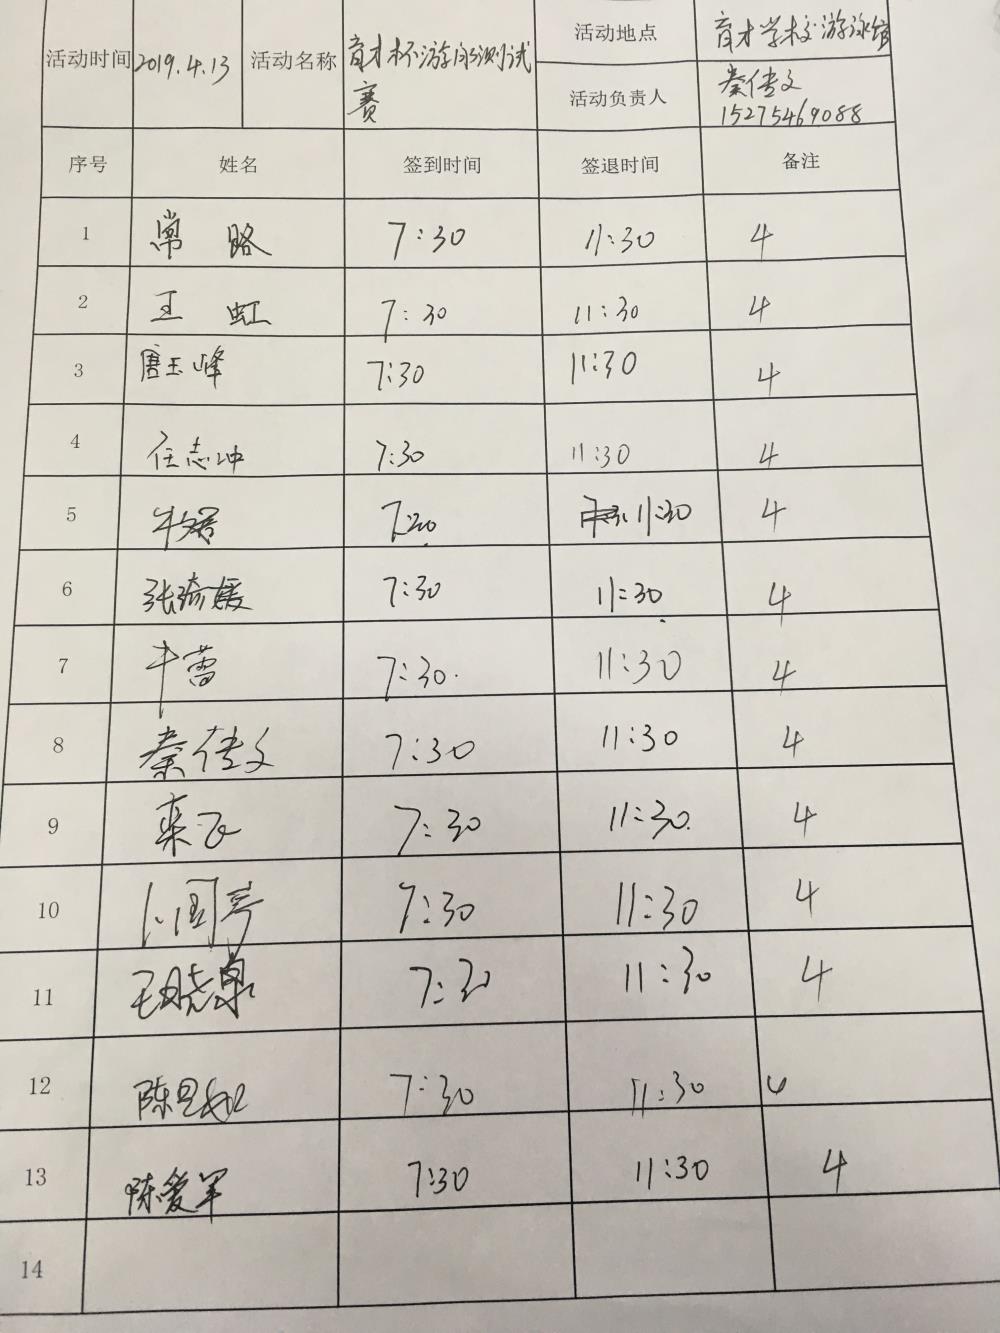 活动时间 2019.4.13 活动名称 育才杯游泳测试赛 活动地点 育才学校游泳馆
活动负责人 秦传文
15275469088
序号 姓名 签到时间 签退时间 备注
1 常路 7:30 11:30 4
2 王虹 7:30 11:30 4
3 唐玉峰 7:30 11:30 4
4 任志冲 7:30 11:30 4
5 7:30 11:30 4
6 张琦媛 7:30 11:30 4
7 牛蕾 7:30 11:30 4
8 秦传文 7:30 11:30 4
9 栾飞 7:30 11:30 4
10 7:30 11:30 4
11 王晓泉 7:30 11:30 4
12 7:30 11:30 4
13 陈爱军 7:30 11:30 4
14